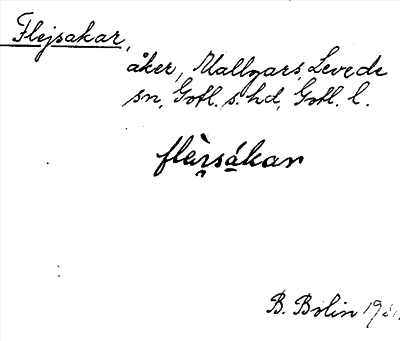 Flejsakar,
åker, Mallgars, Levede
sn, Gotl. s. hd, Gotl. l.
flèrsákan
B. Bolin